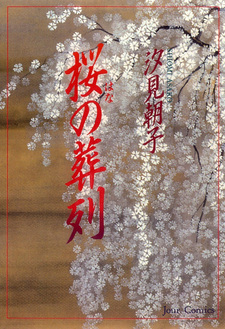 汐見朝子
桜の葬列
はな
Jour Comics